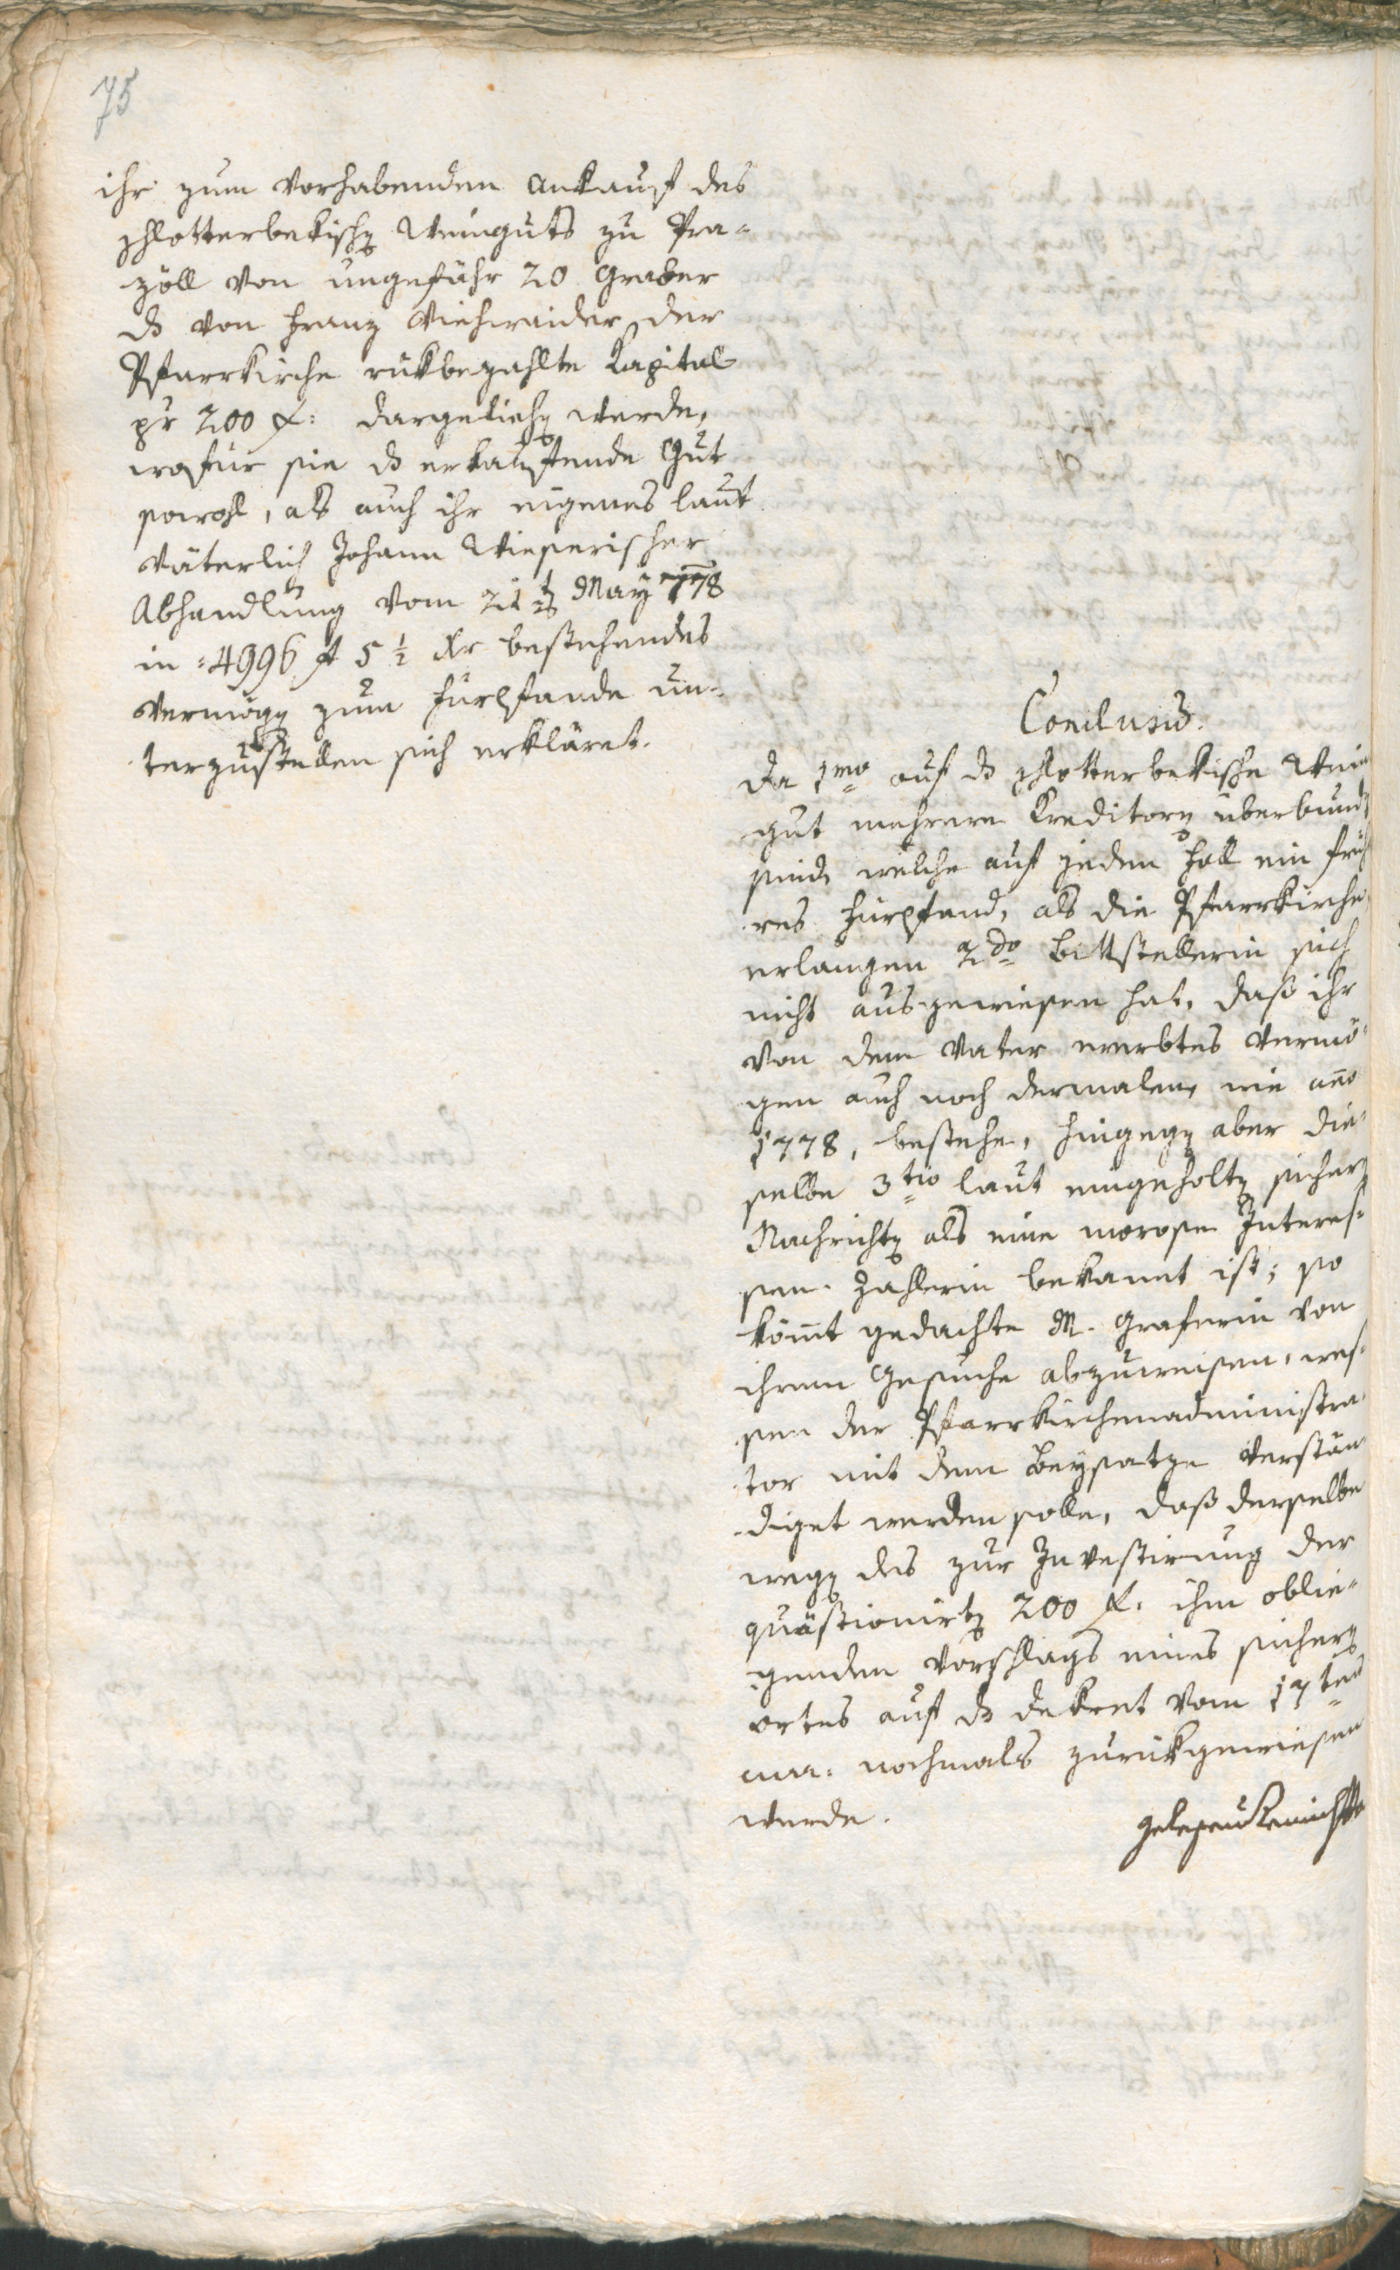 75
ihr zum vorhabenden Ankauf des
schlotterbekischen Weinguts zu Pra-
zöll von ungefähr 20 Graber
das von Franz Viehweider der
Pfarrkirche rükbezahlte Kapital
pr 200 f: dargeliehen werde,
wofür sie das erkaufende Gut
sowohl, als auch ihr eigenes laut
väterlich Johann Wieserischer
Abhandlung vom 21ten May 778
in 4996 f 5 1/2 xr bestehendes
Vermögen zum Fürpfande un-
terzustellen sich erkläret.
Conclusum.
Da 1mo auf das schlotterbekische Wein
gut mehrere Kreditoren überbund
sind, welche auf jeden Fall ein früh
res Fürpfand, als die Pfarrkirche
erlangen 2do Bittstellerin sich
nicht ausgewiesen hat, daß ihr
von dem Vater ererbtes Vermö-
gen auch noch dermalen, wie ano
1778, bestehe, hingegen aber die-
selbe 3tio laut eingeholten sichern
Nachrichten als eine morose Interes-
sen-Zahlerin bekannt ist; so
kömt gedachte M. Graferin von
ihrem Gesuche abzuweisen, wes-
sen der Pfarrkirchenadministra-
tor mit dem Beysatze verstän-
diget werden solle, daß derselbe
wegen des zur Investirung der
quästionirten 200 f. ihm oblie-
genden Vorschlags eines sichern
Ortes auf das Dekret vom 17ten
curr: nochmals zurükgewiesen
werde.